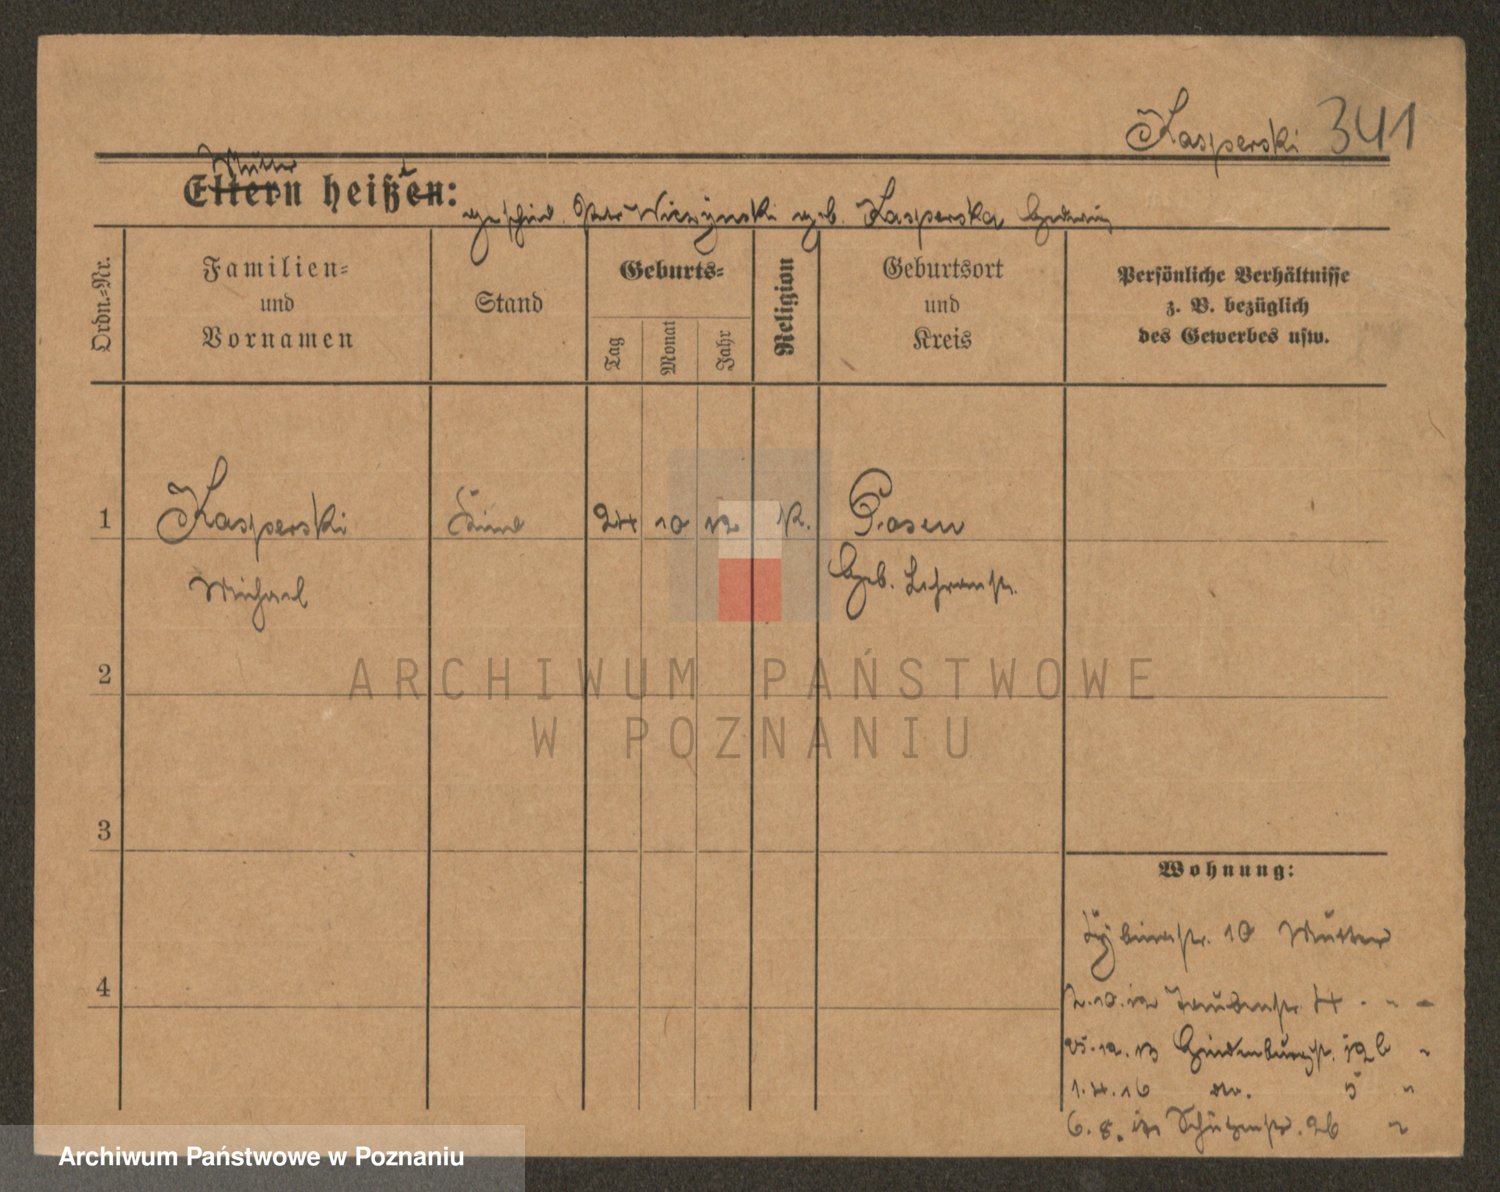 Kasperski 341
Mutter
Eltern heißt:
geschied. geb. Kasperska Hedwig
Ordn.-Nr.
Familien-
und
Vornamen
Stand
Geburts-
Tag
Monat
Jahr
Religion
Geburtsort
und
Kreis
Persönliche Verhältnisse
z. B. bezüglich
des Gewerbes usw.
1 Kasperski 24 10 12 K. Posen
Michael Geb.
2
3
4
ARCHIWUM PAŃSTWOWE
W POZNANIU
Wohnung:
10 Mutter
4 " " "
12 b "
1.4.16 do. 5 "
6.8. Schützenstr. 26 "
Archiwum Państwowe w Poznaniu